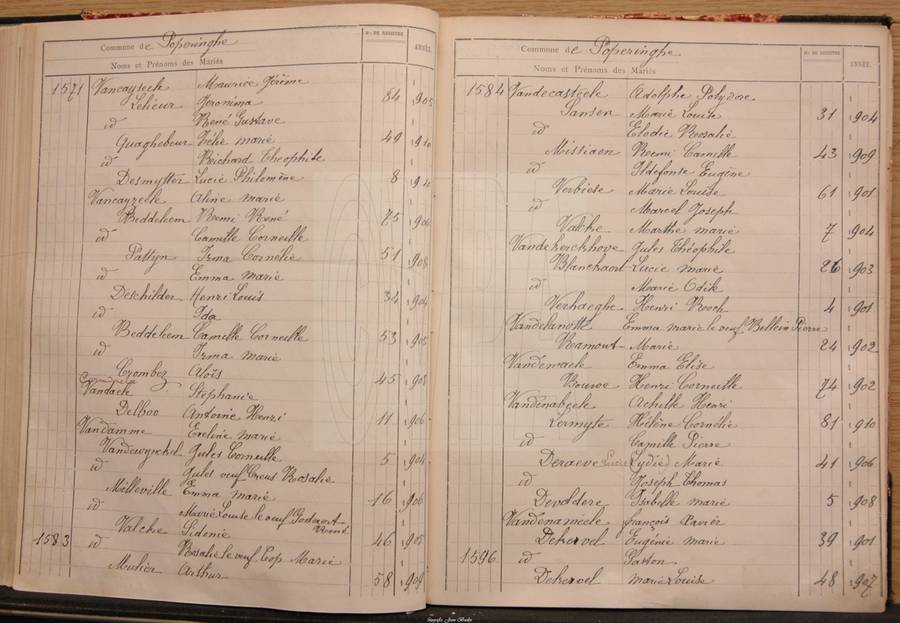 Commune de Poperinghe
Nos DE REGISTRE
ANNÉE.
Noms et Prénoms des Mariés
1571 Vancayseele Maurice Jérôme
Lelieur Jeronima 84 905
id René Gustave
Quaghebeur Zélie marie 49 910
id Richard Theophile
Desmytter Lucie Philomène 8 910
Vancayzeele Aline marie
Beddeleem Remi René 75 906
id Camille Corneille
Pattyn Irma Cornelie 51 908
id Emma marie
Deschilder Henri Louis 34 904
id Ida
Beddeleem Camille Corneille 53 905
id Irma marie
Crombez Aloïs 45 908
Vandaele Stéphanie
Delboo Antoine Henri 11 906
Vandamme Eveline marie
Vandewynckel Jules Corneille 5 904
id Jules veuf Creus Rosalie
Milleville Emma marie 16 906
id Marie Louise le veuf Godaert René
Valcke Sidonie 46 905
1583 id Rosalie le veuf Top Marie
Moulier Arthur 58 909
Commune de Poperinghe
Nos DE REGISTRE
ANNÉE.
Noms et Prénoms des Mariés
1584 Vandecasteele Adolphe Polydore
Sansen Marie Louise 31 904
id Elodie Rosalie
Missiaen Remi Camille 43 909
id Ildefonse Eugène
Verbiese Marie Louise 61 901
id Marcel Joseph
Valcke Marthe marie 7 904
Vandekerckhove Jules Théophile
Blanchaert Lucie marie 26 903
id Marie Odile
Verhaeghe Henri Roch 4 901
Vandelanotte Emma marie le veuf Bellein Pierre
Ramout Marie 24 902
Vandemaele Emma Elise
Bouve Henri Corneille 74 902
Vandenabeele Achille Henri
Lermyte Hélène Cornélie 81 910
id Camille Pierre
Deraeve Lucie (Lydie) Marie 41 906
id Joseph Thomas
Devoldere Isabelle marie 5 908
Vandenameele françois Xavier
Dehervel Eugénie marie 39 901
1596 id Gaston
Dehervel marie Louise 48 907